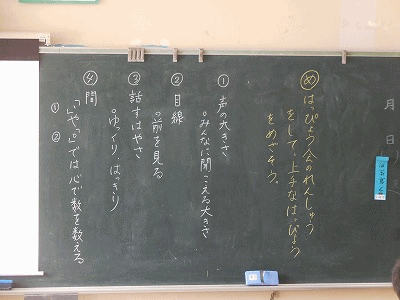 月 日( )
め はっぴょう会のれんしゅう
をして、上手なはっぴょう
をめざそう。
① 声の大きさ
。みんなに聞こえる大きさ
② 目線
。前を見る
③ 話すはやさ
。ゆっくり、はっきり
④ 間
「、」や「。」では心で数を数える
① ②